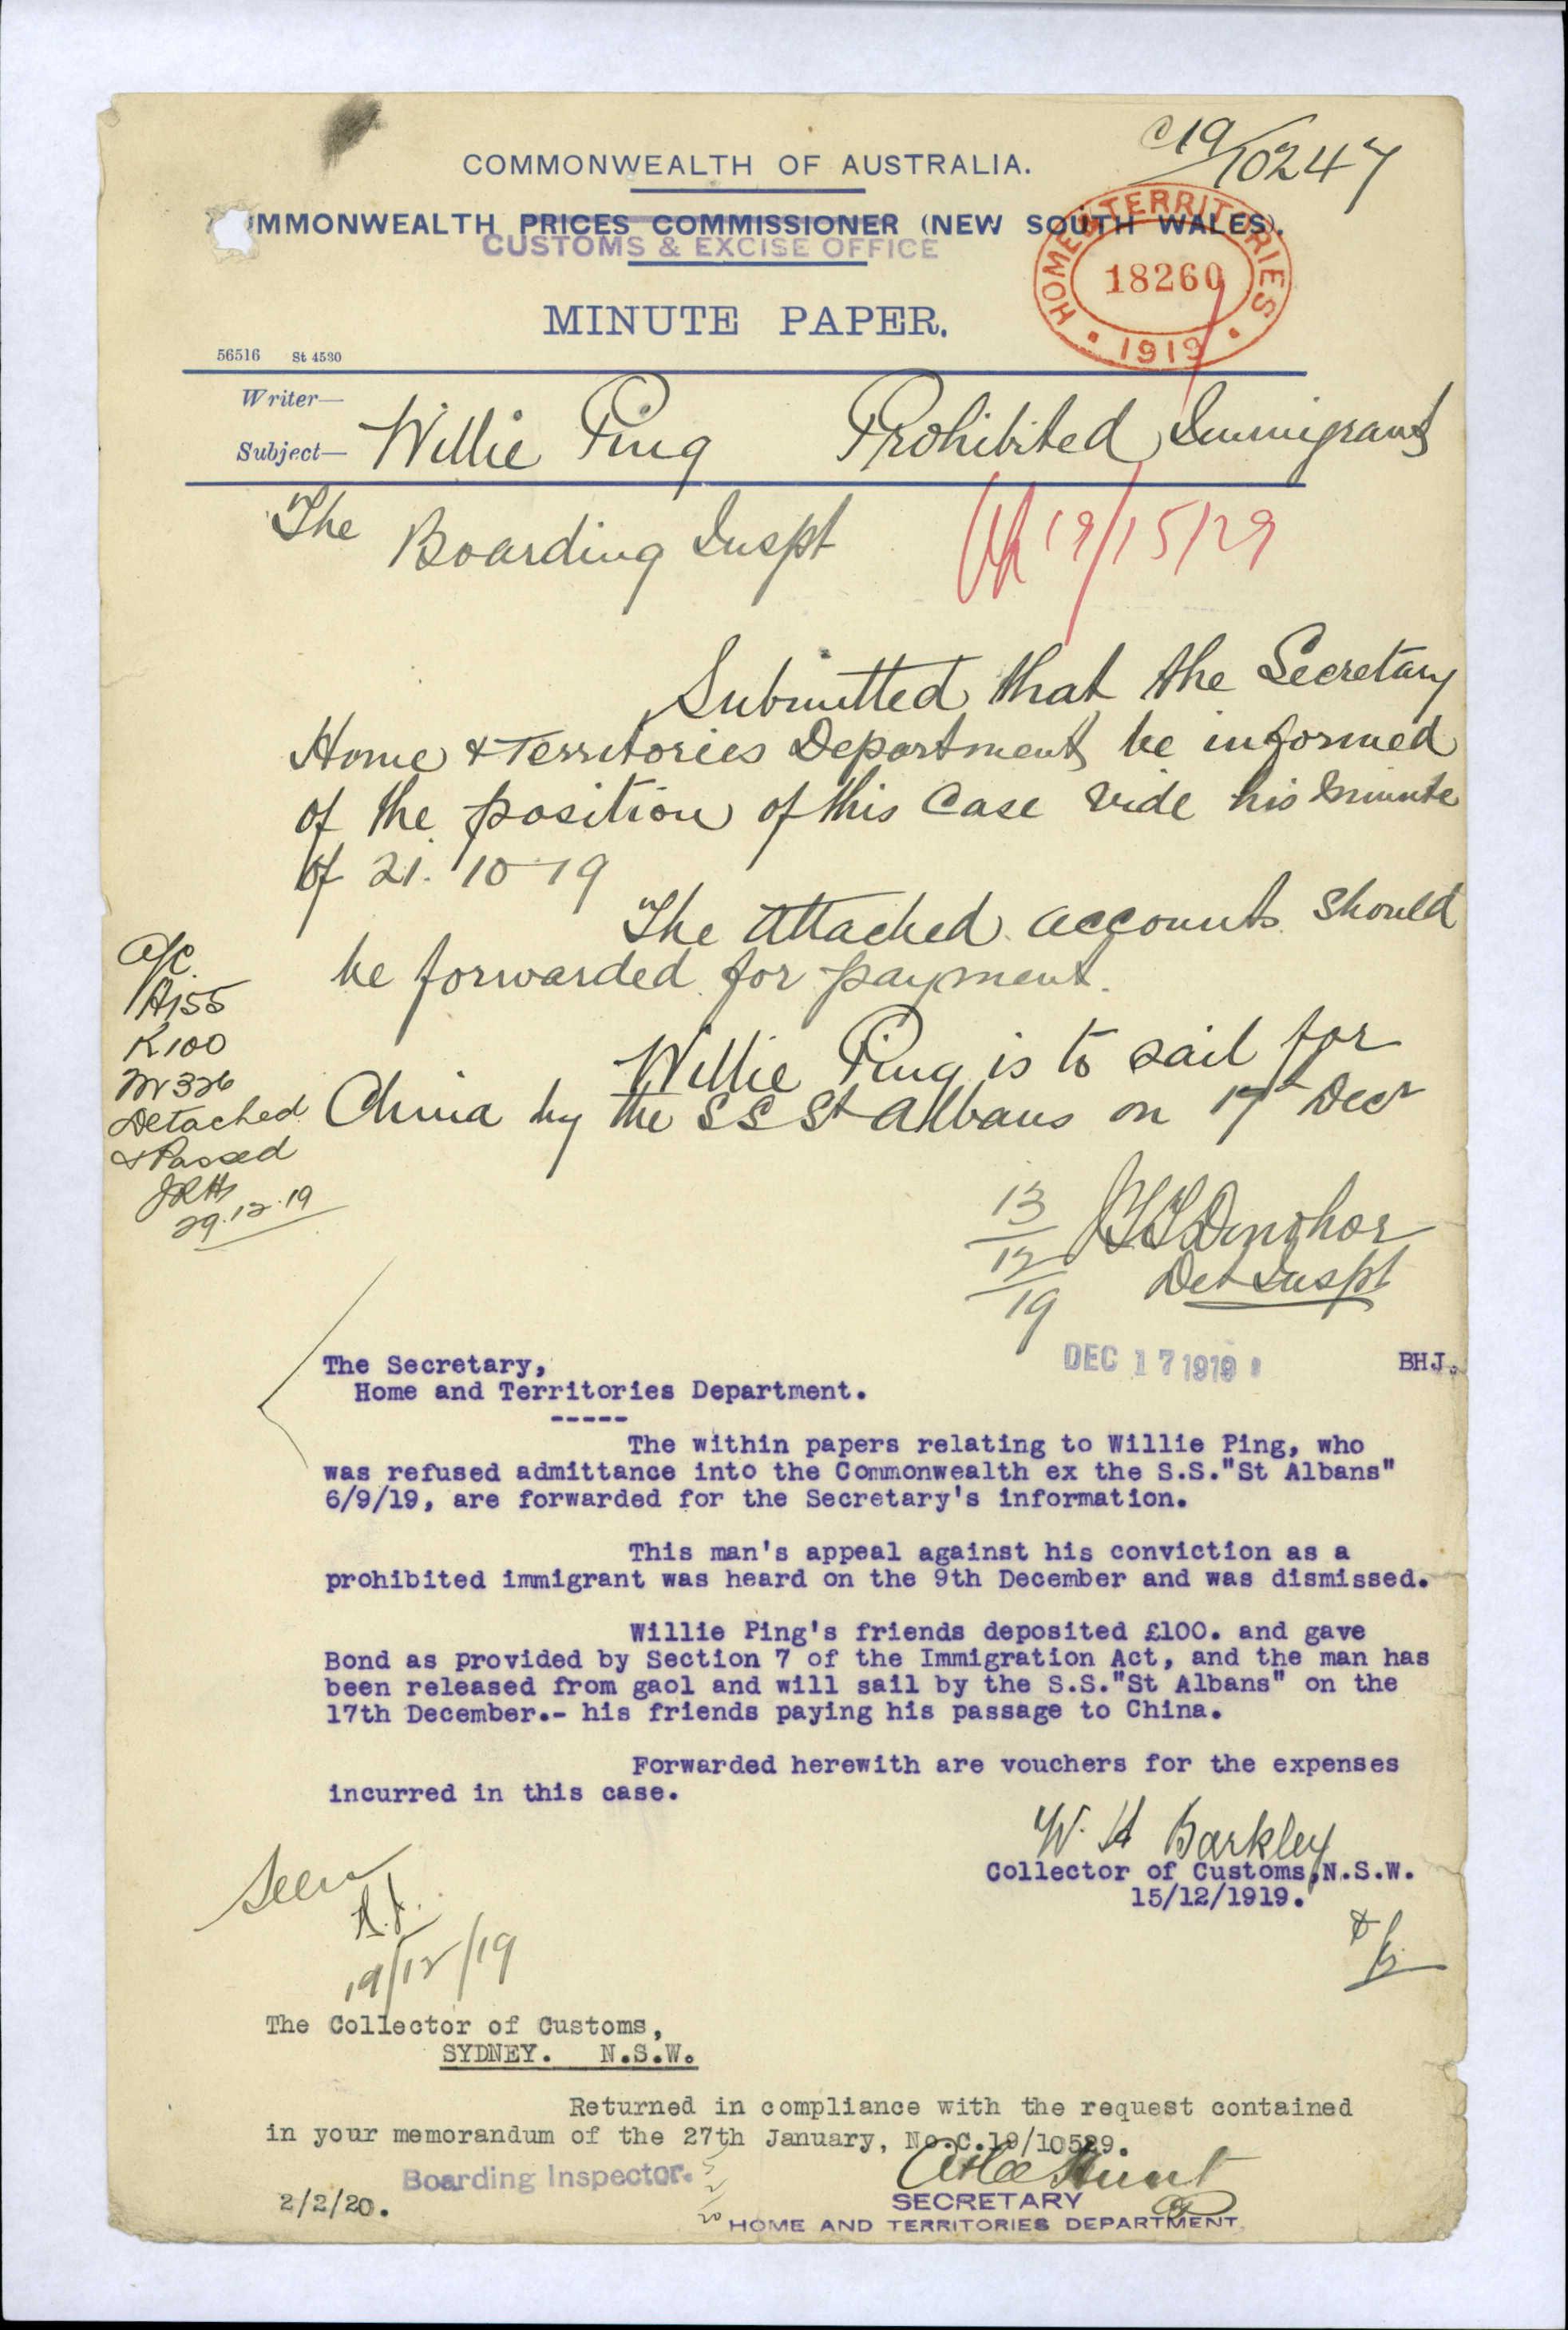 C19/10247
COMMONWEALTH OF AUSTRALIA.
MMONWEALTH PRICES COMMISSIONER (NEW SOUTH WALES).
CUSTOMS & EXCISE OFFICE
HOME & TERRITORIES
18260
1919
MINUTE PAPER.
56516 St 4530
Writer—
Subject— Willie Ping Prohibited Immigrant
The Boarding Inspt
19/15/29
Submitted that the Secretary
Home & Territories Department be informed
of the position of this case vide his minute
of 21.10-19
The attached accounts should
be forwarded for payment.
Willie Ping is to sail for
China by the SS St Albans on 17th Decr
A/C.
A155
K100
M326
Detached
& Passed
JRH
29.12.19
13/12/19 Donohoe
Det Inspt
DEC 17 1919
BHJ.
The Secretary,
Home and Territories Department.
-----
The within papers relating to Willie Ping, who
was refused admittance into the Commonwealth ex the S.S."St Albans"
6/9/19, are forwarded for the Secretary's information.
This man's appeal against his conviction as a
prohibited immigrant was heard on the 9th December and was dismissed.
Willie Ping's friends deposited £100. and gave
Bond as provided by Section 7 of the Immigration Act, and the man has
been released from gaol and will sail by the S.S."St Albans" on the
17th December.- his friends paying his passage to China.
Forwarded herewith are vouchers for the expenses
incurred in this case.
W. H Barkley
Collector of Customs,N.S.W.
15/12/1919.
Seen
19/12/19
The Collector of Customs,
SYDNEY. N.S.W.
Returned in compliance with the request contained
in your memorandum of the 27th January, No.C.19/10529.
Atlee Hunt
Boarding Inspector.
5/2/20
SECRETARY
2/2/20.
HOME AND TERRITORIES DEPARTMENT.